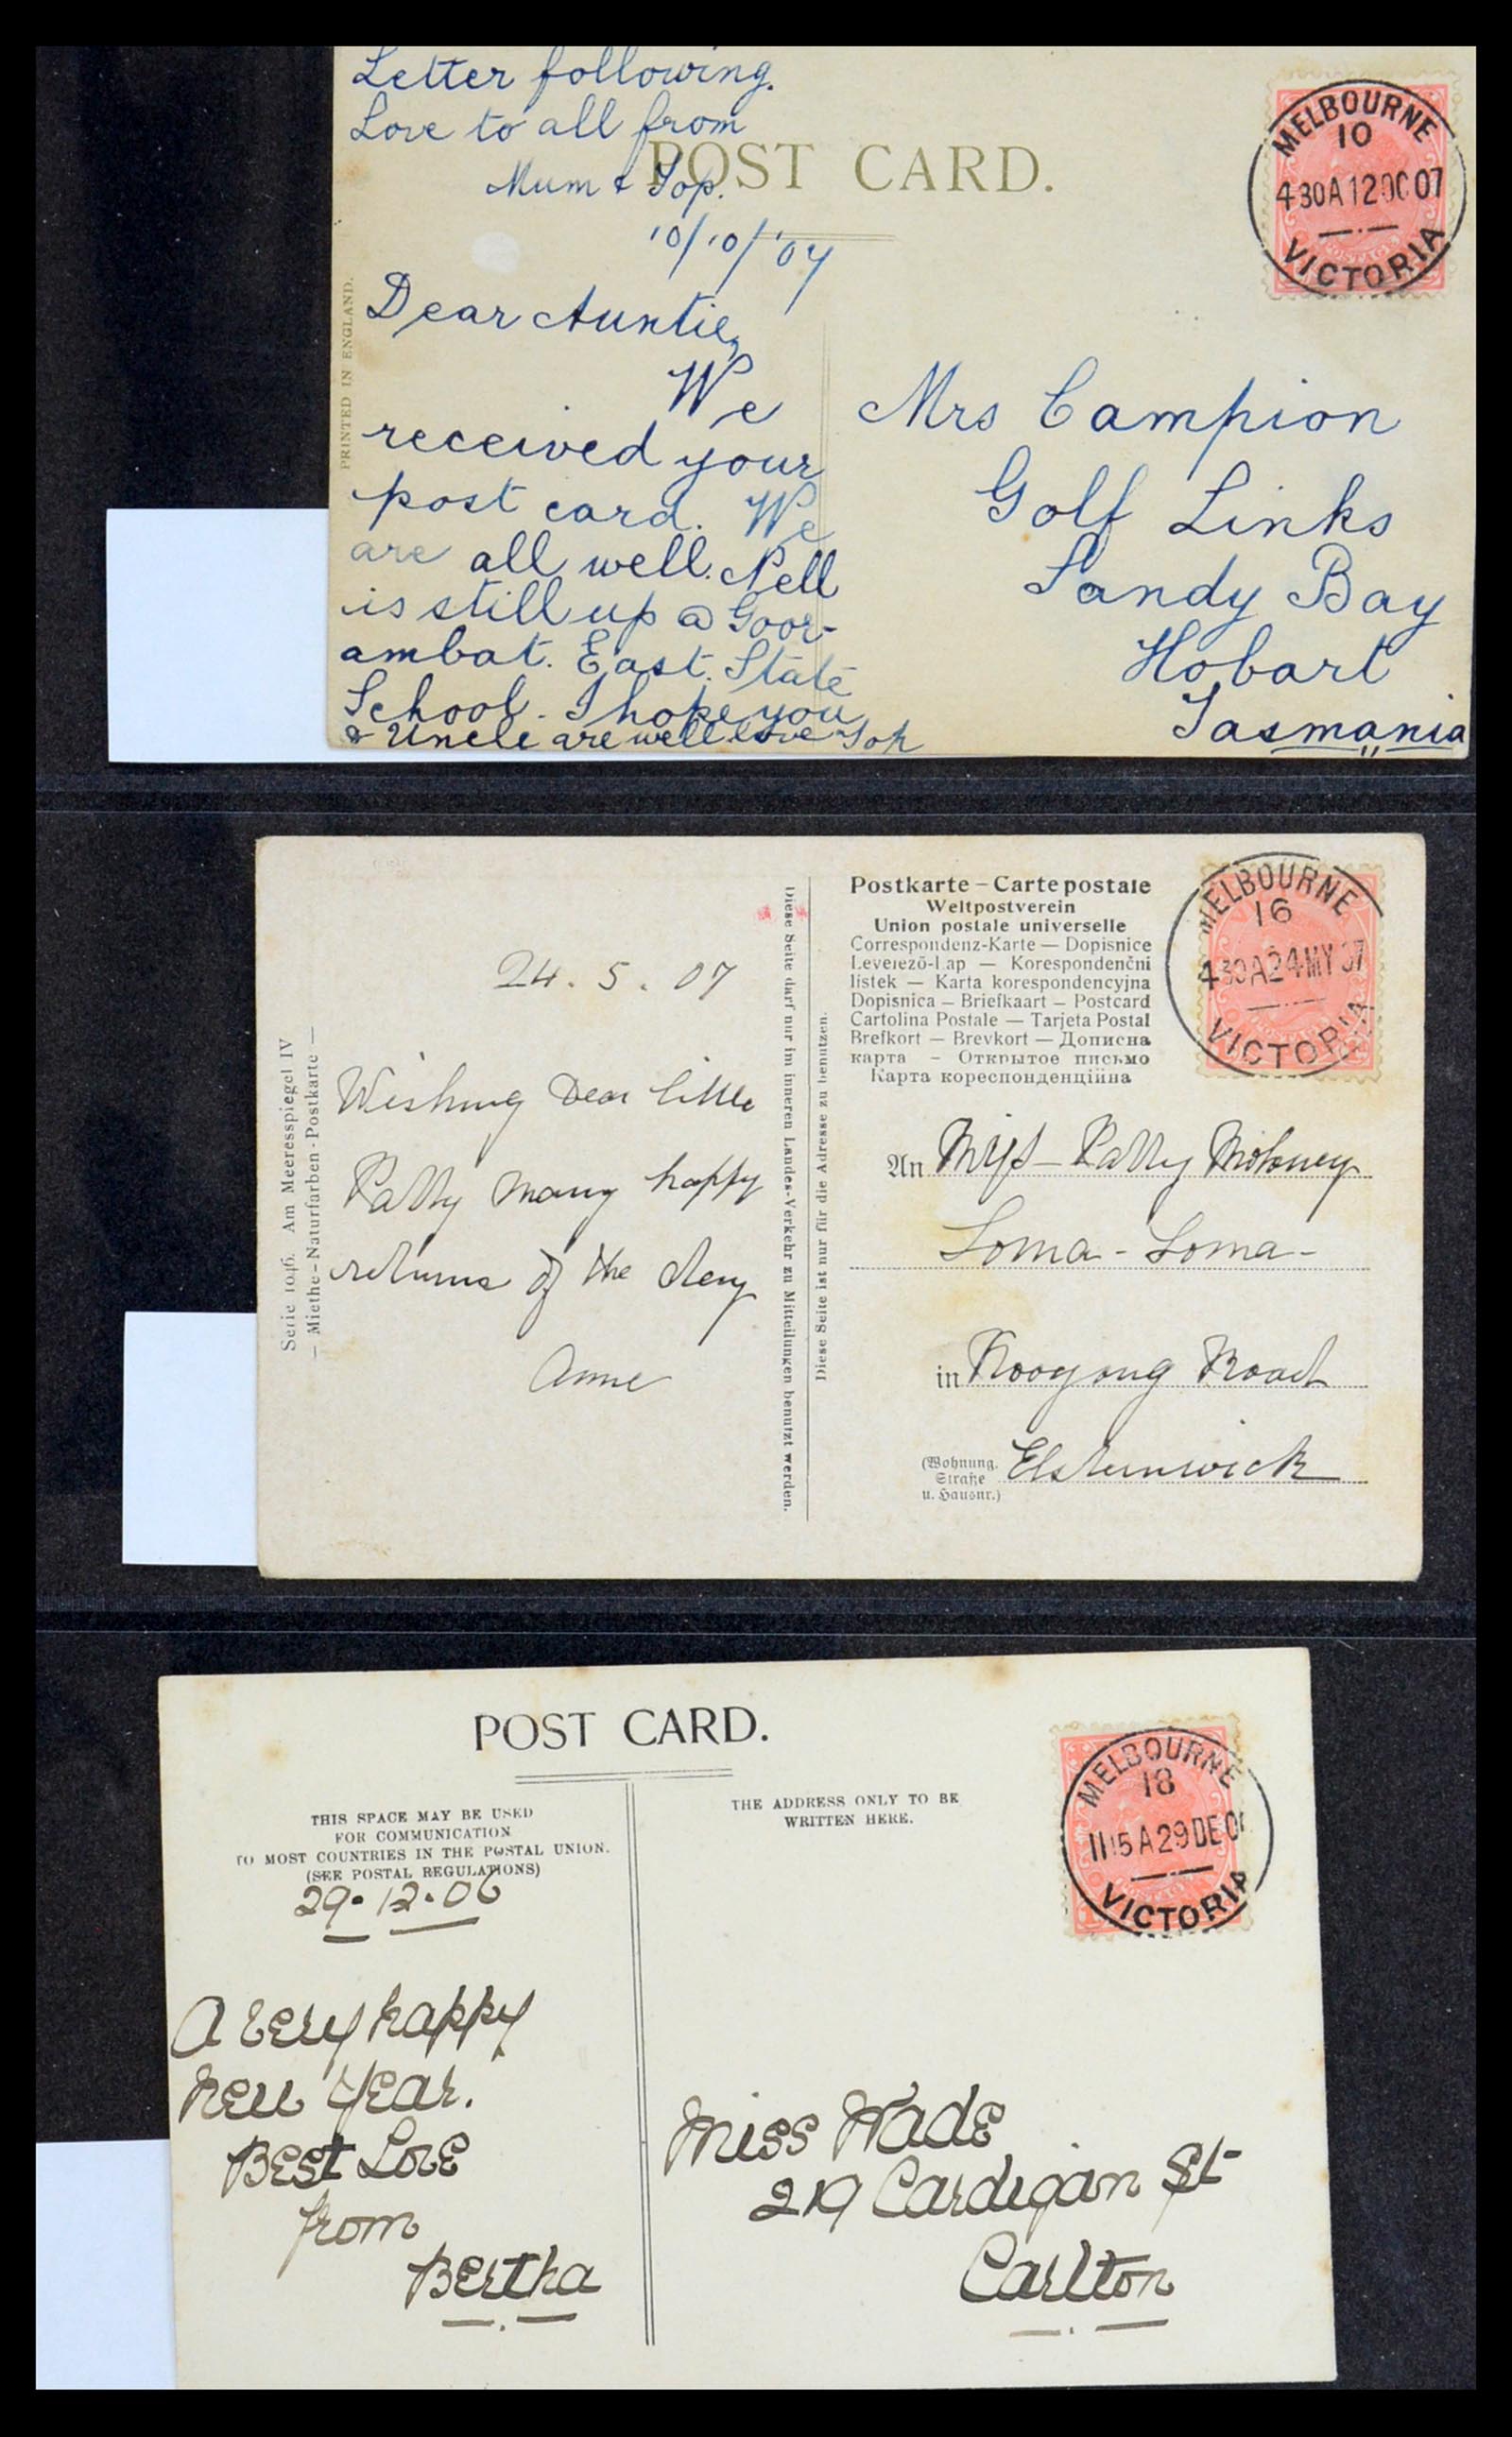 Letter following.
Love to all from
Mum & Top.
POST CARD.
10/10/'07
PRINTED IN ENGLAND.
Dear Auntie,
We
received your
post card. We
are all well. Nell
is still up @ Goor-
ambat. East. State
School. I hope you
& Uncle are well love Top
MELBOURNE
10
4 30A 12 OC 07
VICTORIA
Mrs Campion
Golf Links
Sandy Bay
Hobart
Tasmania
Serie 1046. Am Meeresspiegel IV
— Miethe-Naturfarben-Postkarte —
24. 5. 07
Wishing Dear little
Patty many happy
returns of the day
Anne
Diese Seite darf nur im inneren Landes-Verkehr zu Mitteilungen benutzt werden.
Diese Seite ist nur für die Adresse zu benutzen.
Postkarte – Carte postale
Weltpostverein
Union postale universelle
Correspondenz-Karte — Dopisnice
Levelező-Lap — Korespondenční
listek — Karta korespondencyjna
Dopisnica – Briefkaart – Postcard
Cartolina Postale — Tarjeta Postal
Brefkort — Brevkort — Дописна
карта – Открытое письмо
Карта кореспонденційна
MELBOURNE
16
4 30A 24 MY 07
VICTORIA
An Miss Patty
Loma-Loma-
in Kooyong Road
(Wohnung. Elsternwick
Straße
u. Hausnr.)
POST CARD.
THIS SPACE MAY BE USED
FOR COMMUNICATION
TO MOST COUNTRIES IN THE POSTAL UNION.
(SEE POSTAL REGULATIONS)
29.12.06
A very happy
New Year.
Best Love
from
Bertha
THE ADDRESS ONLY TO BE
WRITTEN HERE.
MELBOURNE
18
11 15 A 29 DE 0
VICTORIA
Miss Wade
219 Cardigan St
Carlton